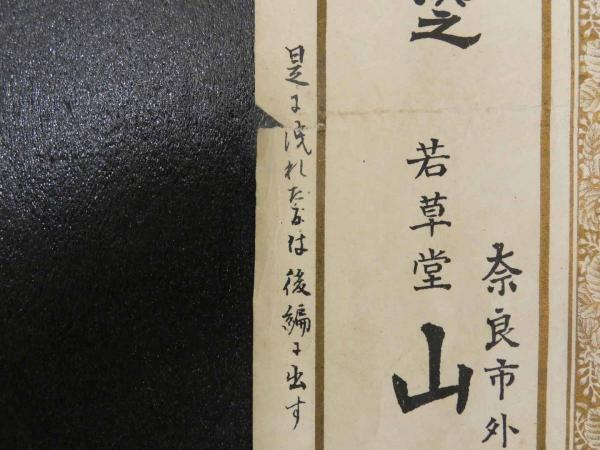 奈良市外
若草堂
山
是に洩れたるは後編に出す